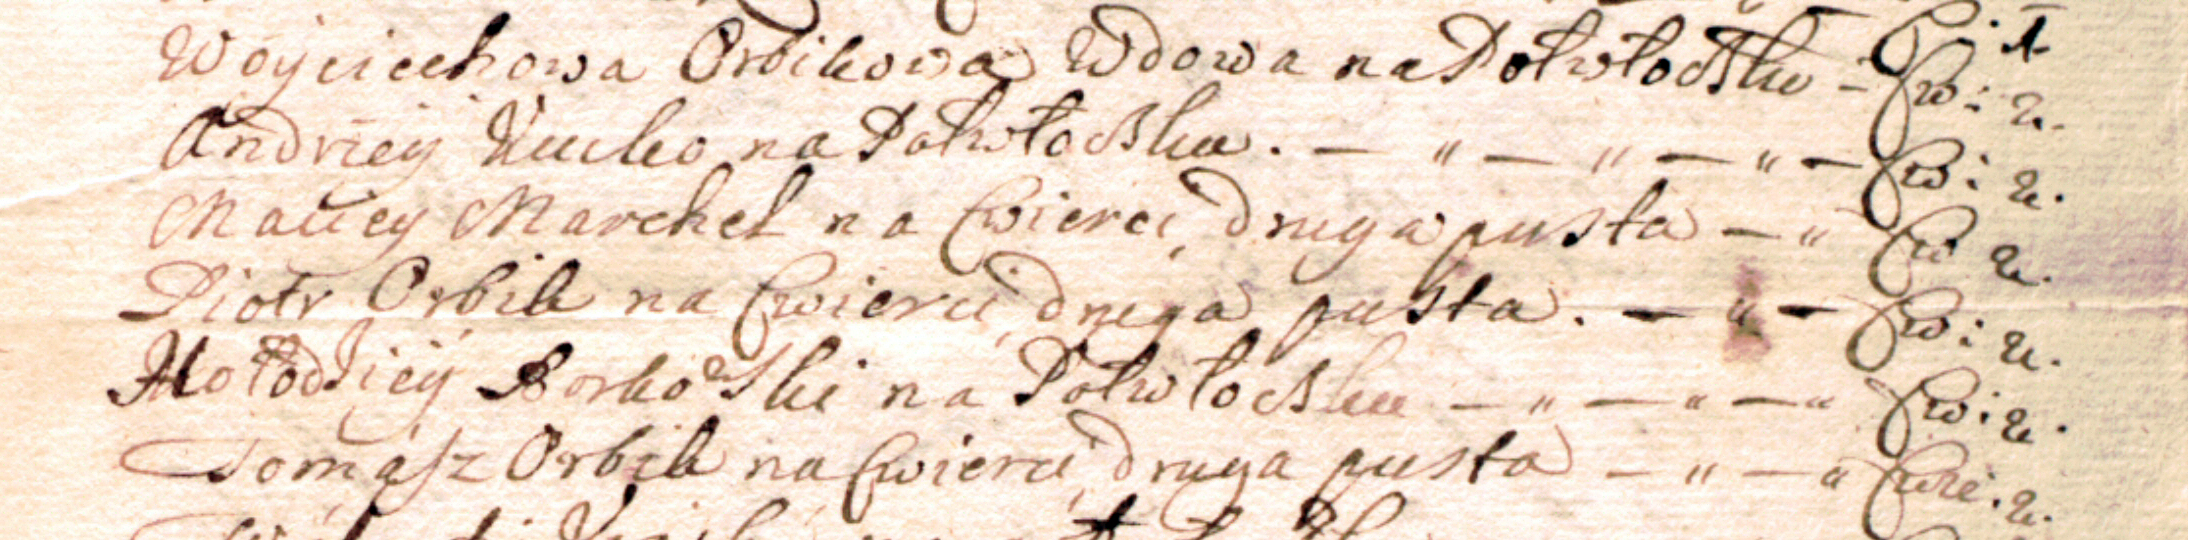 Woyciechowa Orbikowa Wdowa na Połwłocsku - Cwi: 2.
Andrzey Kucko na Połwłocsku. — " — " — " — Cwi: 2.
Maciey Marchel na Cwierci, druga pusta — " Cw 2.
Piotr Orbik na Cwierci, druga pusta. — " — Cwi: 2.
Mołodziey Borkowski na Połwłocsku — " — " — " Cwi: 2.
Tomasz Orbik na Cwierci, druga pusta — " — " Cwie. 2.